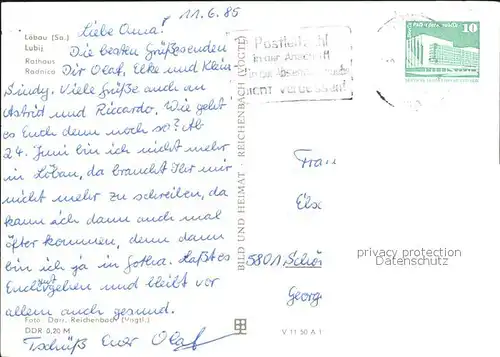 11.6.86
Löbau (Sa.)
Lubij
Rathaus
Radnica
Liebe Oma!
Die besten Grüße senden
Dir Olaf, Elke und Klein
Sindy. Viele Grüße auch an
Astrid und Riccardo. Wie geht
es Euch denn noch so? Ab
24. Juni bin ich nicht mehr
in Löbau, da braucht Ihr mir
nicht mehr zu schreiben, da
kann ich dann auch mal
öfter kommen, denn dann
bin ich ja in Gotha. Laßt es
Euch gut gehen und bleibt vor
allem auch gesund.
Foto: Darr, Reichenbach (Vogtl.)
DDR 0,20 M
Tschüß Euer Olaf
BILD UND HEIMAT · REICHENBACH (VOGTL)
V 11 50 A 1
Postleitzahl
in der Anschrift
nicht vergessen!
10
Frau
Else
5801 Schön
Georg
privacy protection
Datenschutz